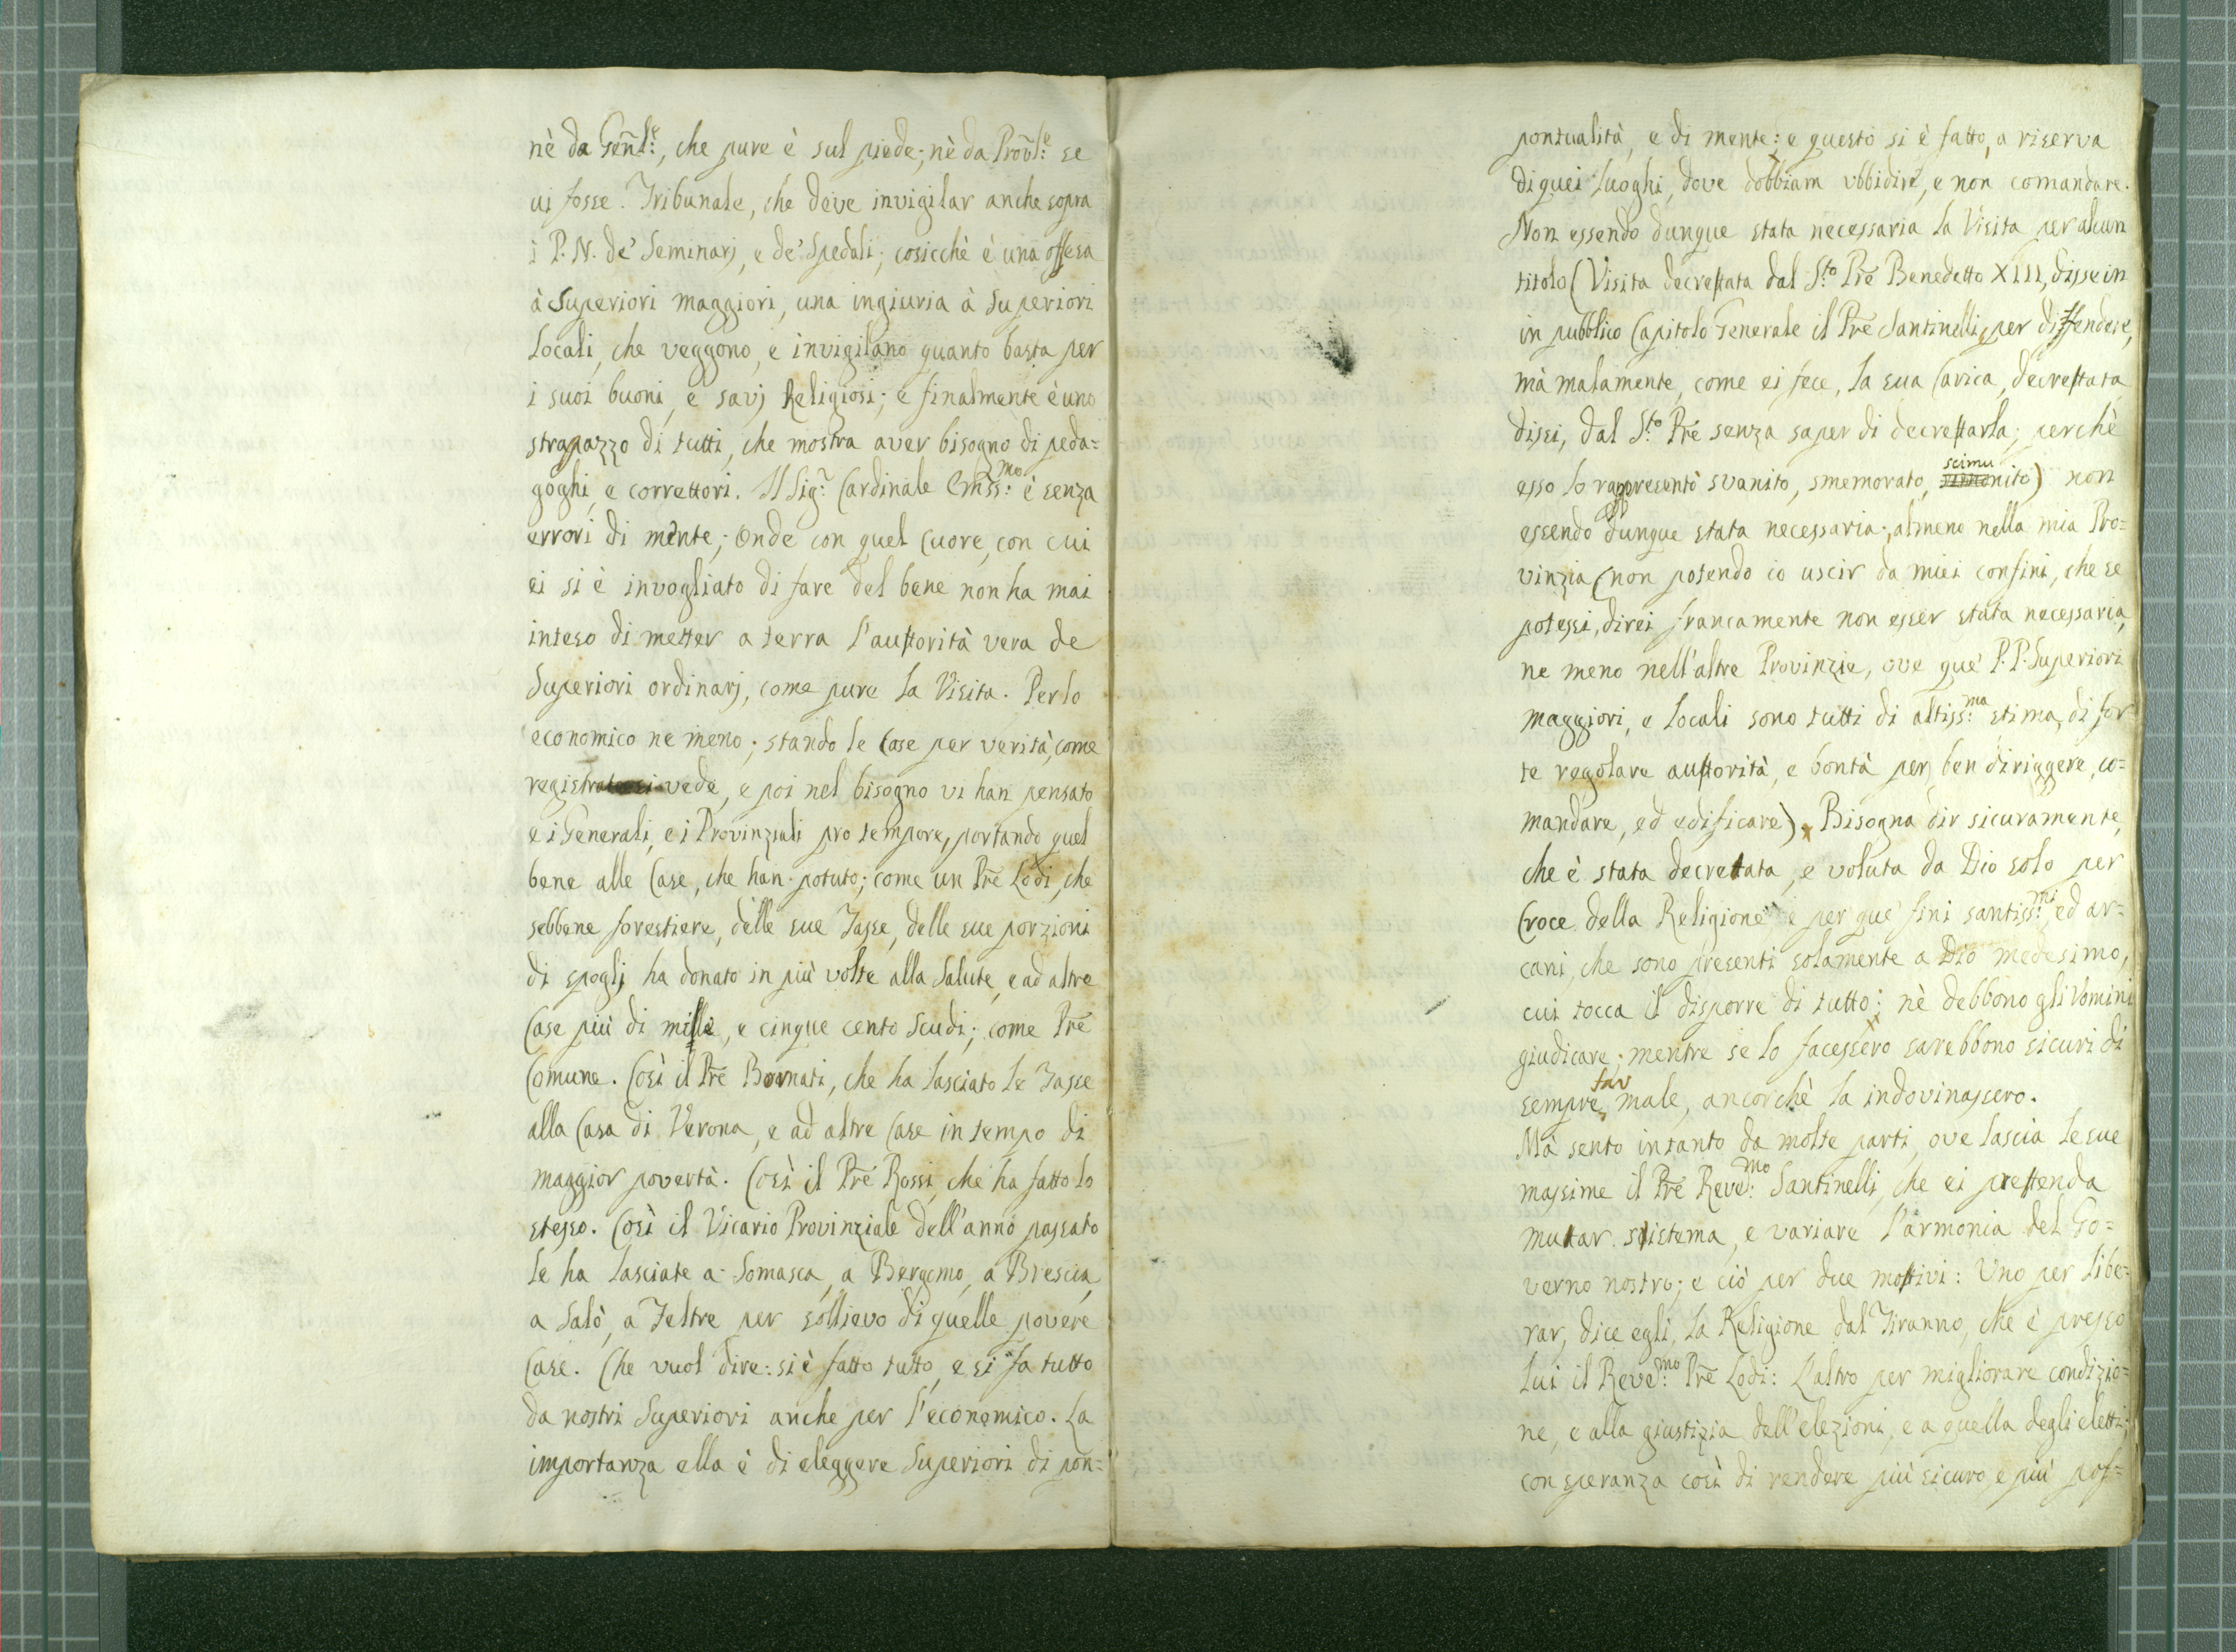 nè da Gen̄l.e, che pure è sul piede; nè da Prov̄l.e se
ui fosse. Tribunale, che deve invigilar anche sopra
i P. N. de' Seminarj, e de' Spedali; cosicchè è una offesa
à Superiori maggiori, una ingiuria à Superiori
Locali, che veggono, e invigilano quanto basta per
i suoi buoni, e savj Religiosi; e finalmente è uno
strapazzo di tutti, che mostra aver bisogno di peda=
goghi, e correttori. Il Sig.r Cardinale Em̄ss.mo è senza
errori di mente; Onde con quel Cuore, con cui
ei si è invogliato di fare del bene non ha mai
inteso di metter a terra l'auttorità vera de
Superiori ordinarj, come pure la Visita. Per lo
economico ne meno; stando le Case per verità, come
registrato si vede, e poi nel bisogno vi han pensato
e i Generali, e i Provinziali pro tempore, portando quel
bene alle Case, che han potuto; come un Prē Lodi, che
sebbene forestiere, delle sue Tasse, delle sue porzioni
di spoglj ha donato in più volte alla Salute, e ad altre
Case più di mille, e cinque cento Scudi; come Prē
Comune. Così il Prē Bornati, che ha lasciato le Tasse
alla Casa di Verona, e ad altre Case in tempo di
maggior povertà. Così il Prē Rossi, che ha fatto lo
stesso. Così il Vicario Provinziale dell'anno passato
le ha lasciate a Somasca, a Bergamo, a Brescia,
a Salò, a Feltre per sollievo di quelle povere
Case. Che vuol dire: si è fatto tutto, e si fa tutto
da nostri Superiori anche per l'economico. La
importanza ella è di eleggere Superiori di pon=
pontualità, e di mente; e questo si è fatto, a riserva
di quei Luoghi, dove dobbiam ubbidire, e non comandare.
Non essendo dunque stata necessaria la Visita per alcun
titolo (Visita decrettata dal S.to Prē Benedetto XIII, disse in
in pubblico Capitolo Generale il Prē Santinelli, per diffendere,
mà malamente, come ei fece, la sua Carica, decrettata
dissi, dal S.to Prē senza saper di decrettarla; perchè
esso lo rappresentò svanito, smemorato, scimunito) non
essendo dunque stata necessaria, almeno nella mia Pro=
vinzia (non potendo io uscir da miei confini, che se
potessi, direi francamente non esser stata necessaria,
ne meno nell'altre Provinzie, ove que' P.P. Superiori
maggiori, e Locali sono tutti di altiss.ma stima, di for
te regolare auttorità, e bontà per ben diriggere, co=
mandare, ed edificare). Bisogna dir sicuramente,
che è stata decretata, e voluta da Dio solo per
Croce della Religione e per que' fini santiss.mi, ed ar=
cani, che sono presenti solamente a Dio medesimo,
cui tocca il disporre di tutto; nè debbono gli Vomini
giudicare; mentre se lo facessero sarebbono sicuri di
sempre far male, ancorchè la indovinassero.
Mà sento intanto da molte parti, ove lascia le sue
massime il Prē Reve.mo Santinelli, che ei prettenda
mutar sistema, e variare l'armonia del Go=
verno nostro; e ciò per due mottivi: Uno per libe=
rar, dice egli, la Religione dal Tiranno, che è presso
lui il Reve.mo Prē Lodi: L'altro per migliorare condizio=
ne, e alla giustizia dell'elezioni, e a quella degli eletti;
con speranza così di rendere più sicuro, e più pos=